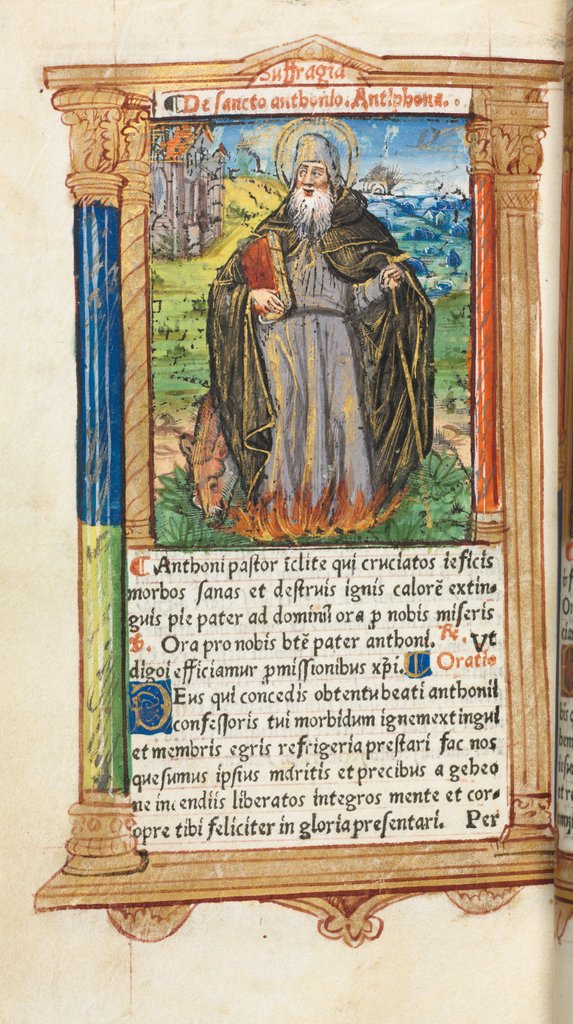 Suffragia
¶De sancto anthonio. Antiphona.
¶ Anthoni pastor ı̄clite qui cruciatos ıeficis
morbos sanas et destruis ignis calorē extin-
guis pie pater ad dominū ora p nobis miseris
℣. Ora pro nobis btē pater anthoni. ℟. Vt
digni efficiamur pmissionibus xpi. ¶ Oratio
Deus qui concedis obtentu beati anthonii
confessoris tui morbidum ignem extingui
et membris egris refrigeria prestari fac nos
quesumus ipsius meritis et precibus a gehen
ne incendiis liberatos integros mente et cor-
opre tibi feliciter in gloria presentari. Per